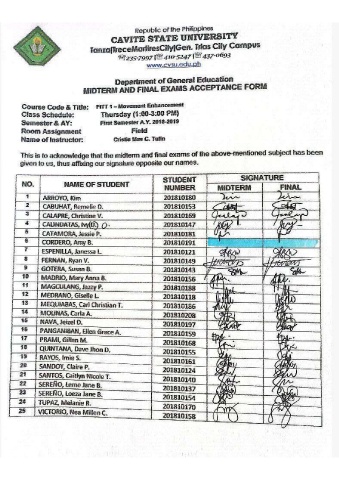 Republic of the Philippines
CAVITE STATE UNIVERSITY
Tanza|TreceMartiresCity|Gen. Trias City Campus
www.cvsu.edu.ph
Department of General Education
MIDTERM AND FINAL EXAMS ACCEPTANCE FORM
Course Code & Title: FITT 1 – Movement Enhancement
Class Schedule: Thursday (1:00-3:00 PM)
Semester & AY: First Semester A.Y. 2018-2019
Room Assignment Field
Name of Instructor: Cristie Mae C. Tufin
This is to acknowledge that the midterm and final exams of the above-mentioned subject has been
given to us, thus affixing our signature opposite our names.
NO. NAME OF STUDENT STUDENT NUMBER SIGNATURE
MIDTERM FINAL
1 ARROYO, Kim 201810180
2 CABUHAT, Romelie D. 201810153
3 CALAPRE, Christine V. 201810169
4 201810147
5 CATAMORA, Jessie P. 201810181
6 CORDERO, Amy B. 201810191
7 ESPENILLA, Janessa L. 201810121
8 FERNAN, Ryan V. 201810149
9 GOTERA, Susan B. 201810143
10 MADRID, Mary Anna B. 201810156
11 MAGCULANG, Juzzy P. 201810188
12 MEDRANO, Giselle L. 201810118
13 MEQUIABAS, Carl Christian T. 201810186
14 MOLINAS, Carla A. 201810208
15 NAVA, Jeizel D. 201810197
16 PANGANIBAN, Ellen Grace A. 201810159
17 PRAMI, Gillen M. 201810168
18 QUINTANA, Dave Jhon D. 201810155
19 RAYOS, Irnie S. 201810161
20 SANDOY, Claire P. 201810124
21 SANTOS, Caitlyn Nicole T. 201810140
22 SEREÑO, Leme Jane B. 201810137
23 SEREÑO, Loeza Jane B. 201810154
24 TUPAZ, Melanie R. 201810170
25 VICTORIO, Nea Millen C. 201810158